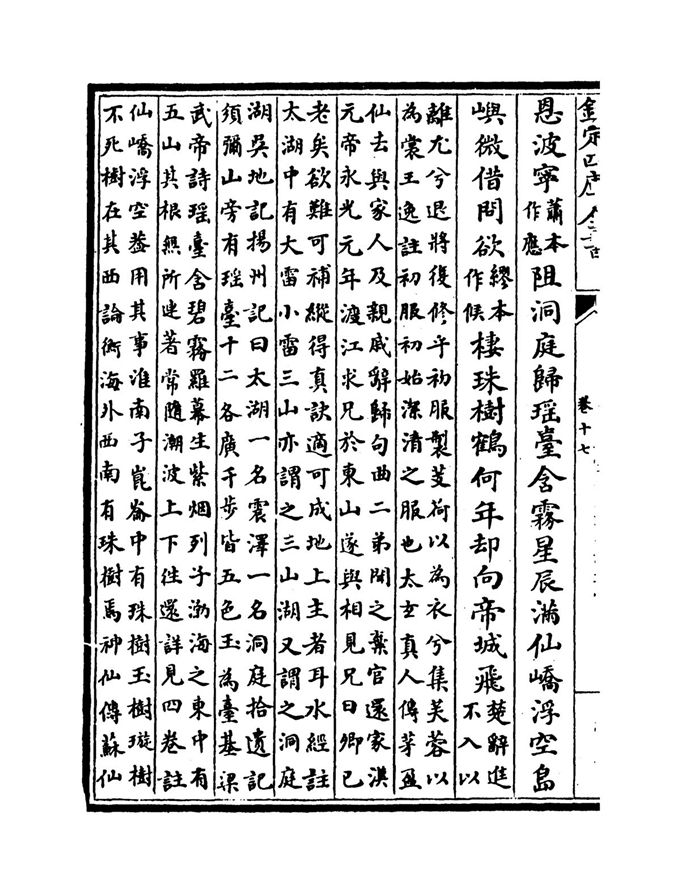 欽定四庫全書
卷十七
恩波寧蕭本作應阻洞庭歸瑶臺含霧星辰滿仙嶠浮空島
嶼微借問欲繆本作候棲珠樹鶴何年却向帝城飛楚辭進不入以
離尤兮退將復修乎初服製芰荷以為衣兮集芙蓉以
為裳王逸註初服初始潔清之服也太𤣥真人傳茅盈
仙去與家人及親戚辭歸句曲二弟聞之棄官還家漢
元帝永光元年渡江求兄於東山遂與相見兄曰卿已
老矣欲難可補縱得真訣適可成地上主者耳水經註
太湖中有大雷小雷三山亦謂之三山湖又謂之洞庭
湖吳地記揚州記曰太湖一名震澤一名洞庭拾遺記
須彌山旁有瑶臺十二各廣千步皆五色玉為臺基梁
武帝詩瑶臺含碧霧羅幕生紫烟列子渤海之東中有
五山其根無所連著常隨潮波上下徃還詳見四卷註
仙嶠浮空葢用其事淮南子崑崙中有珠樹玉樹璇樹
不死樹在其西論衡海外西南有珠樹焉神仙傳蘇仙